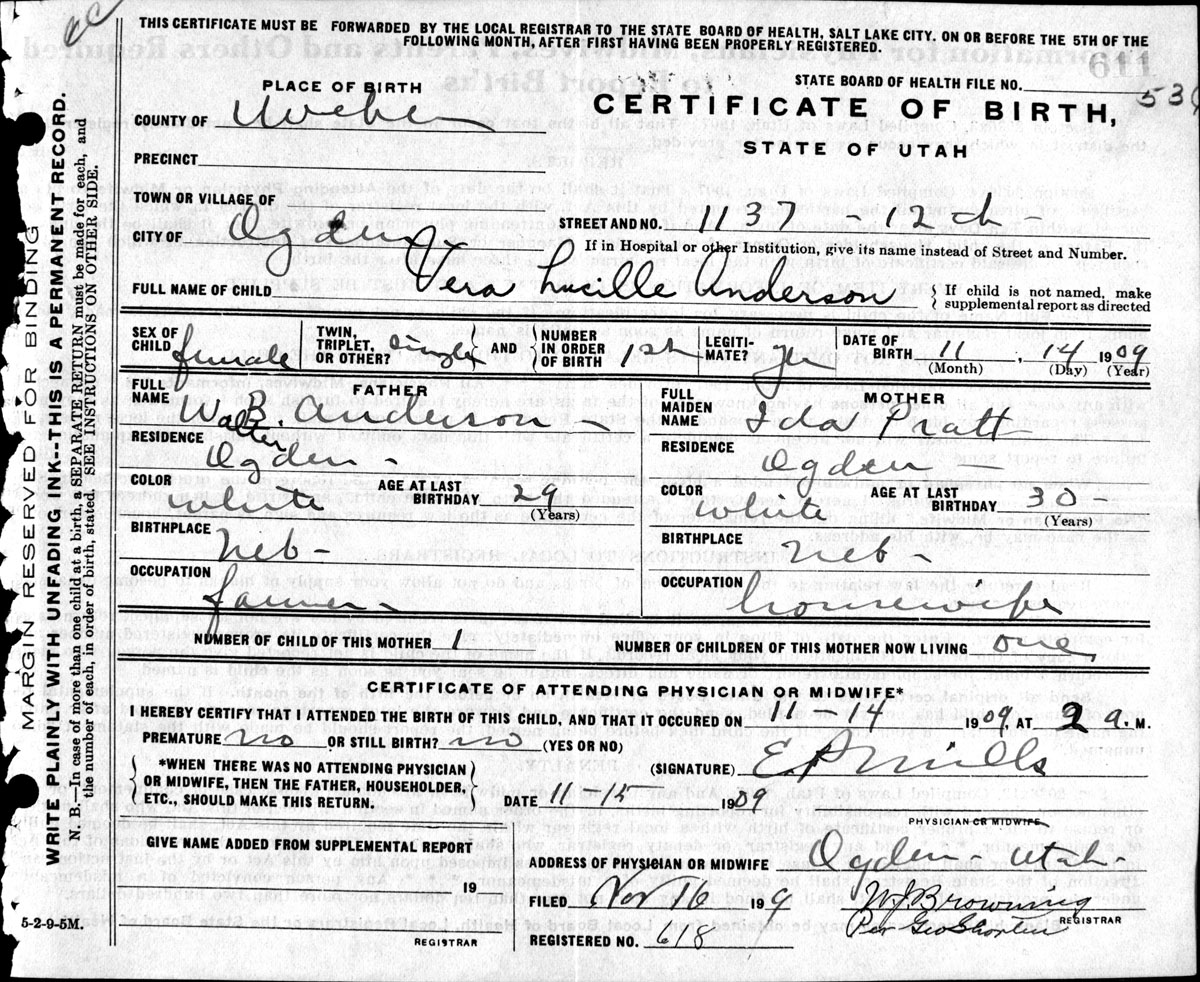 THIS CERTIFICATE MUST BE FORWARDED BY THE LOCAL REGISTRAR TO THE STATE BOARD OF HEALTH, SALT LAKE CITY, ON OR BEFORE THE 5TH OF THE
FOLLOWING MONTH, AFTER FIRST HAVING BEEN PROPERLY REGISTERED.
PLACE OF BIRTH
STATE BOARD OF HEALTH FILE NO.
CERTIFICATE OF BIRTH,
STATE OF UTAH
COUNTY OF Weber
PRECINCT
TOWN OR VILLAGE OF
STREET AND NO. 1137 - 12th
CITY OF Ogden
If in Hospital or other Institution, give its name instead of Street and Number.
FULL NAME OF CHILD Vera Lucille Anderson { If child is not named, make supplemental report as directed
SEX OF CHILD female TWIN, TRIPLET, OR OTHER? Single AND { NUMBER IN ORDER OF BIRTH 1st LEGITIMATE? Yes DATE OF BIRTH 11 14 1909
(Month) (Day) (Year)
FATHER
FULL NAME Walter B. Anderson -
RESIDENCE Ogden -
COLOR White AGE AT LAST BIRTHDAY 29 (Years)
BIRTHPLACE Neb -
OCCUPATION farmer -
MOTHER
FULL MAIDEN NAME Ida Pratt
RESIDENCE Ogden -
COLOR White AGE AT LAST BIRTHDAY 30 - (Years)
BIRTHPLACE Neb -
OCCUPATION housewife
NUMBER OF CHILD OF THIS MOTHER 1 NUMBER OF CHILDREN OF THIS MOTHER NOW LIVING one
CERTIFICATE OF ATTENDING PHYSICIAN OR MIDWIFE*
I HEREBY CERTIFY THAT I ATTENDED THE BIRTH OF THIS CHILD, AND THAT IT OCCURED ON 11 - 14 1909 AT 2 a. M.
PREMATURE no OR STILL BIRTH? no (YES OR NO)
*WHEN THERE WAS NO ATTENDING PHYSICIAN
OR MIDWIFE, THEN THE FATHER, HOUSEHOLDER,
ETC., SHOULD MAKE THIS RETURN.
(SIGNATURE) E P Mills
DATE 11 - 15 1909
PHYSICIAN OR MIDWIFE
GIVE NAME ADDED FROM SUPPLEMENTAL REPORT
19
REGISTRAR
ADDRESS OF PHYSICIAN OR MIDWIFE Ogden Utah
FILED Nov 16 199
W J Browning
REGISTRAR
Per Geo Shorten
REGISTERED NO. 618
5-2-9-5M.
MARGIN RESERVED FOR BINDING
WRITE PLAINLY WITH UNFADING INK--THIS IS A PERMANENT RECORD.
N. B.—In case of more than one child at a birth, a SEPARATE RETURN must be made for each, and
the number of each, in order of birth, stated. SEE INSTRUCTIONS ON OTHER SIDE.